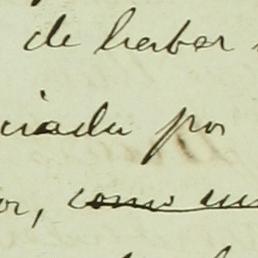 de herbar
ciada por
or, como un